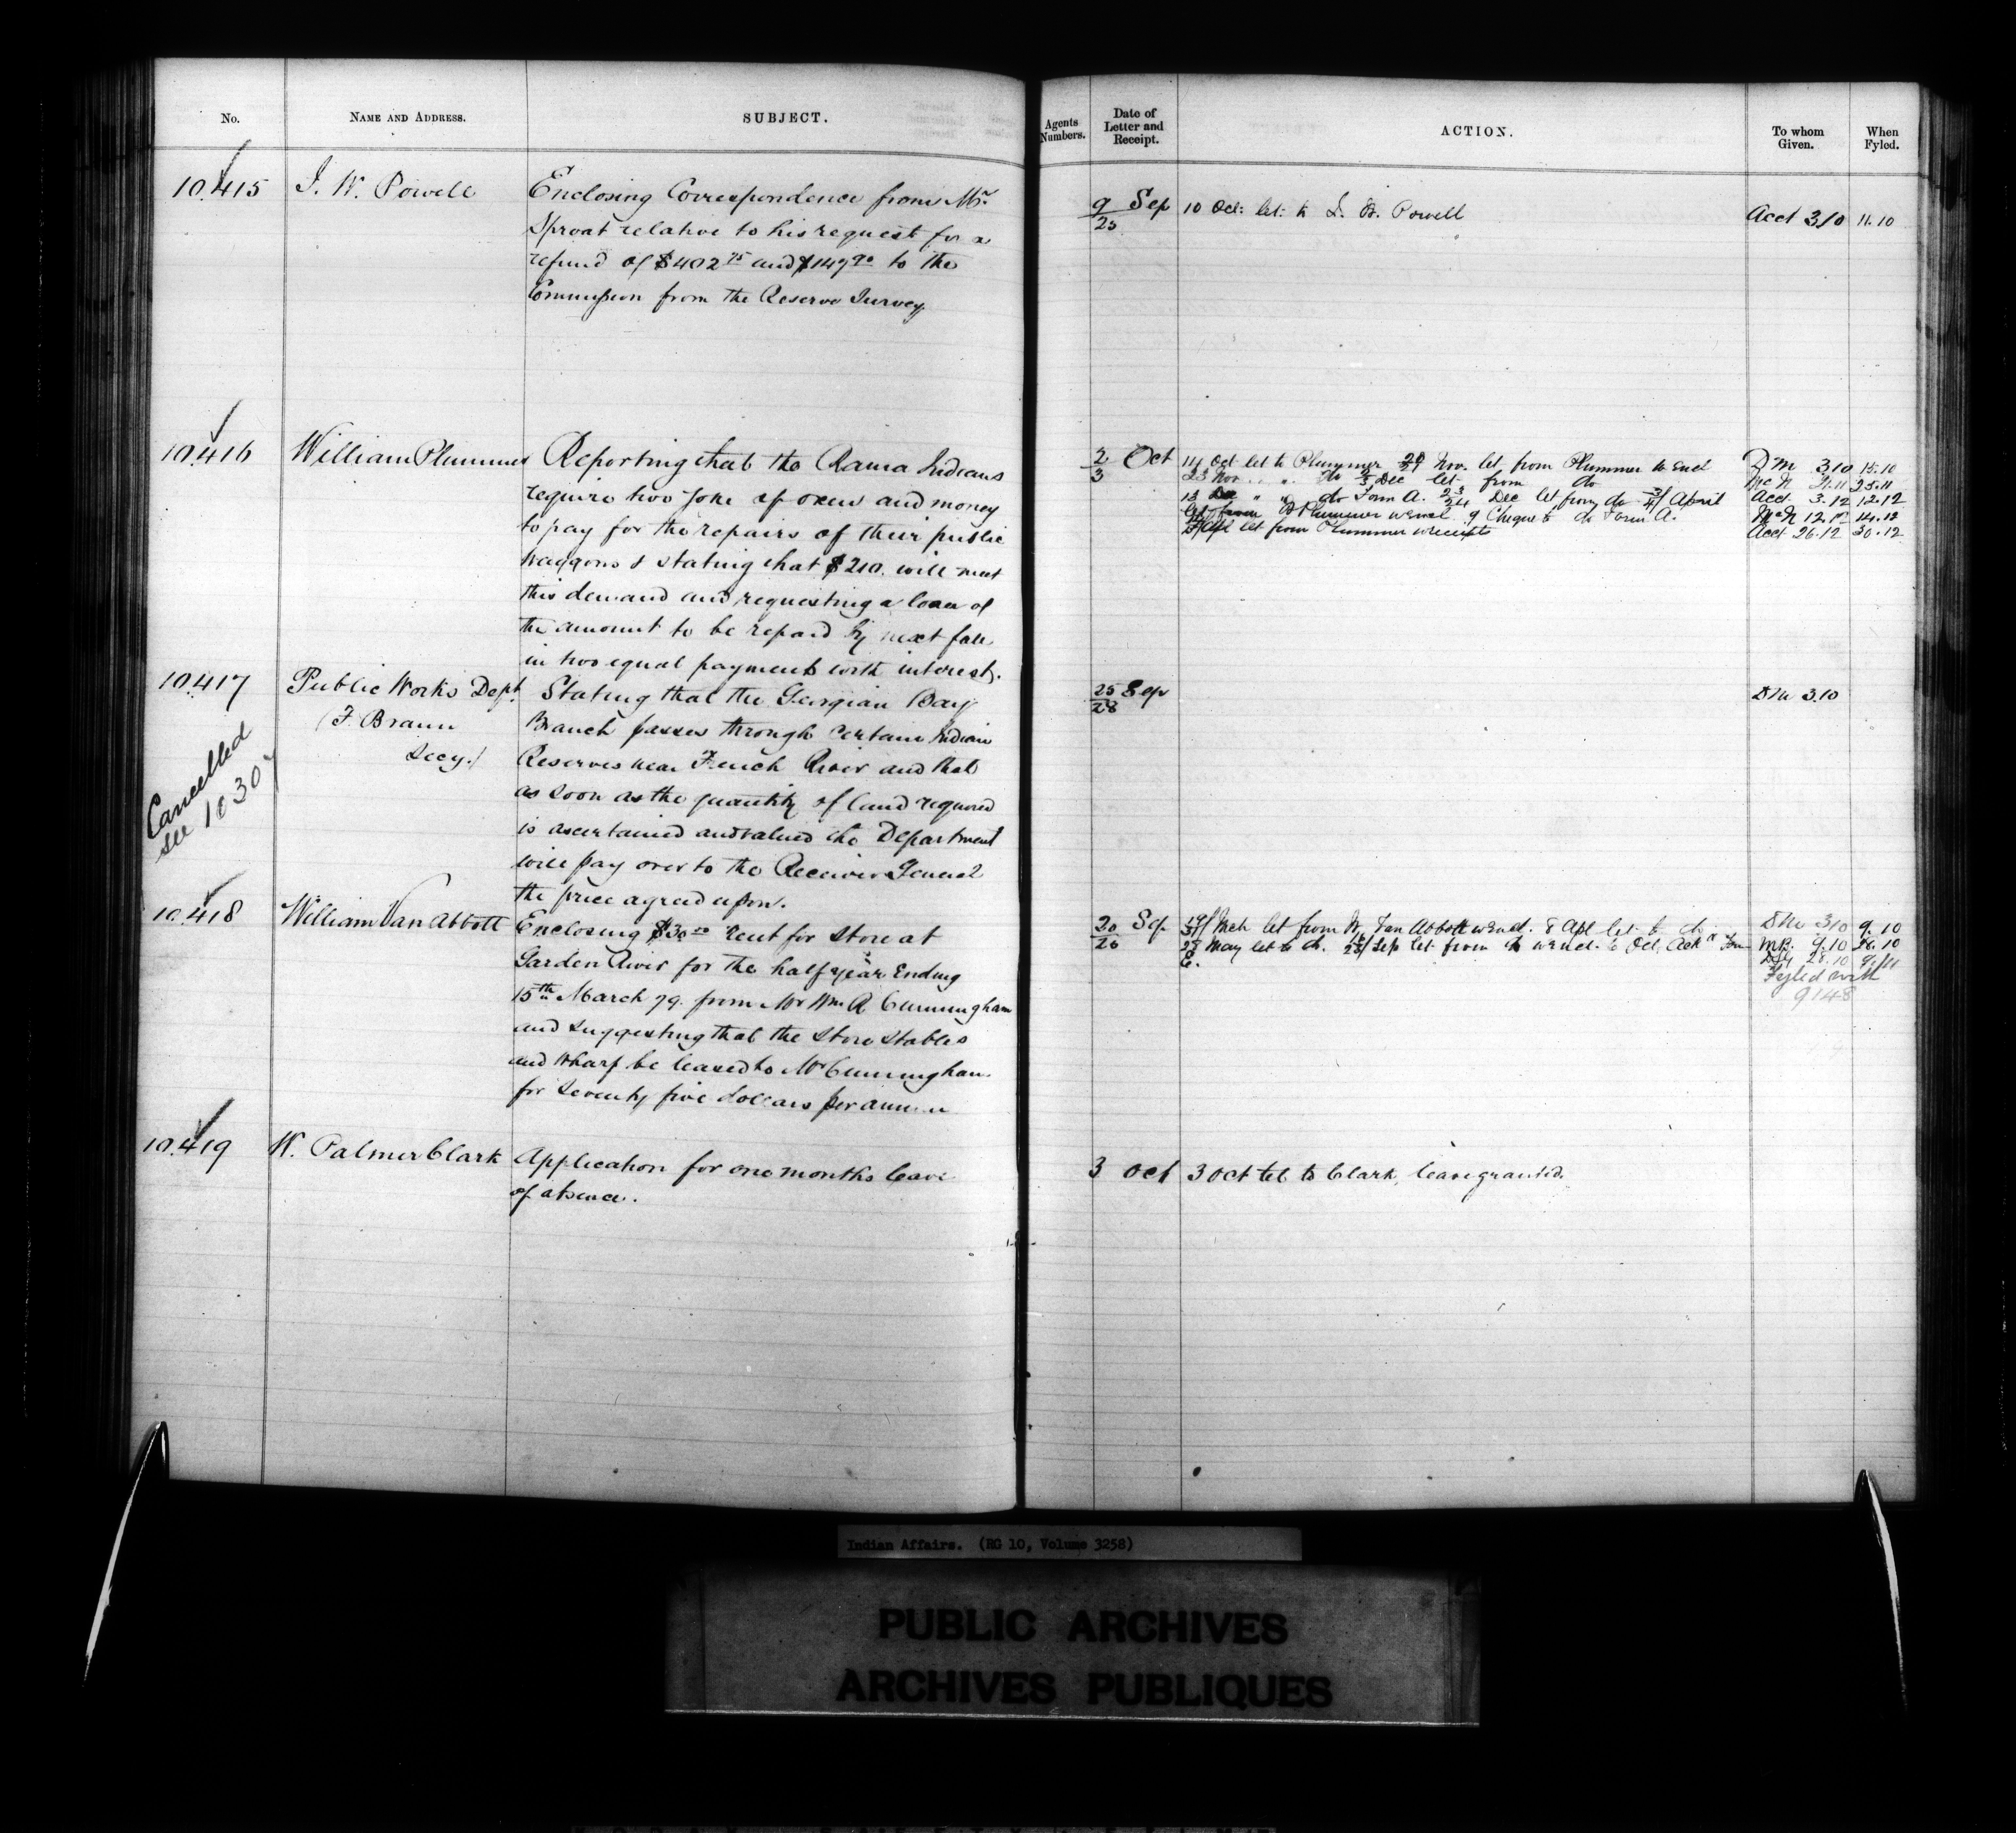 No.
NAME AND ADDRESS.
SUBJECT.
10.415
I. W. Powell
Enclosing Correspondence from Mr.
Sproat relative to his request for a
refund of $402 75 and $149 90 to the
Commission from the Reserve Survey
10.416
William Plummer
Reporting that the Rama Indians
require two yoke of oxen and money
to pay for the repairs of their public
waggons & stating that $210. will meet
this demand and requesting a loan of
the amount to be repaid by next fall
in two equal payments with interest.
10.417
Cancelled
see 10307
Public Works Dept.
(F. Braun
Secy.)
Stating that the Georgian Bay
Branch passes through certain Indian
Reserves near French River and that
as soon as the quantity of land required
is ascertained and valued the Department
will pay over to the Receiver General
the price agreed upon.
10.418
William Van Abbott
Enclosing $30 rent for store at
Garden River for the half year Ending
15th March 79. from Mr Wm A Cunningham
and suggesting that the Store Stables
and wharf be leased to Mr Cunningham
for seventy five dollars per annum
10.419
W. Palmer Clark
Application for one months leave
of absence.
Agents
Numbers.
Date of
Letter and
Receipt.
ACTION.
To whom
Given.
When
Fyled.
9 Sep
25
10 Oct: let: to I. W. Powell
Acct 3/10
11.10
2 Oct
3
11 Oct let to Plummer 20/21 Nov. let from Plummer w Encl
23 Nov. " " do 2/3 Dec let from do
13 Dec " " do Form A. 23/24 Dec let from do April
let from Plummer w encl. 9 Cheque to do Form A.
Apl let from Plummer w receipts
DM 3.10 15.10
McN 21.11 25.11
Acct 3.12 12.12
McN 12.12 14.12
Acct 26.12 30.12
25 Sep
28
DM 3.10
20 Sep
26
Mch let from W. Van Abbott w encl. 8 Apl let to do
28 May let to do. Sep let from do w encl. 6 Oct, Ack Form
E.
DM 3/10 9.10
MB. 9.10 28.10
28.10 9/11
Fyled with
9148
3 Oct
3 Oct tel to Clark, leave granted.
Indian Affairs. (RG 10, Volume 3258)
PUBLIC ARCHIVES
ARCHIVES PUBLIQUES